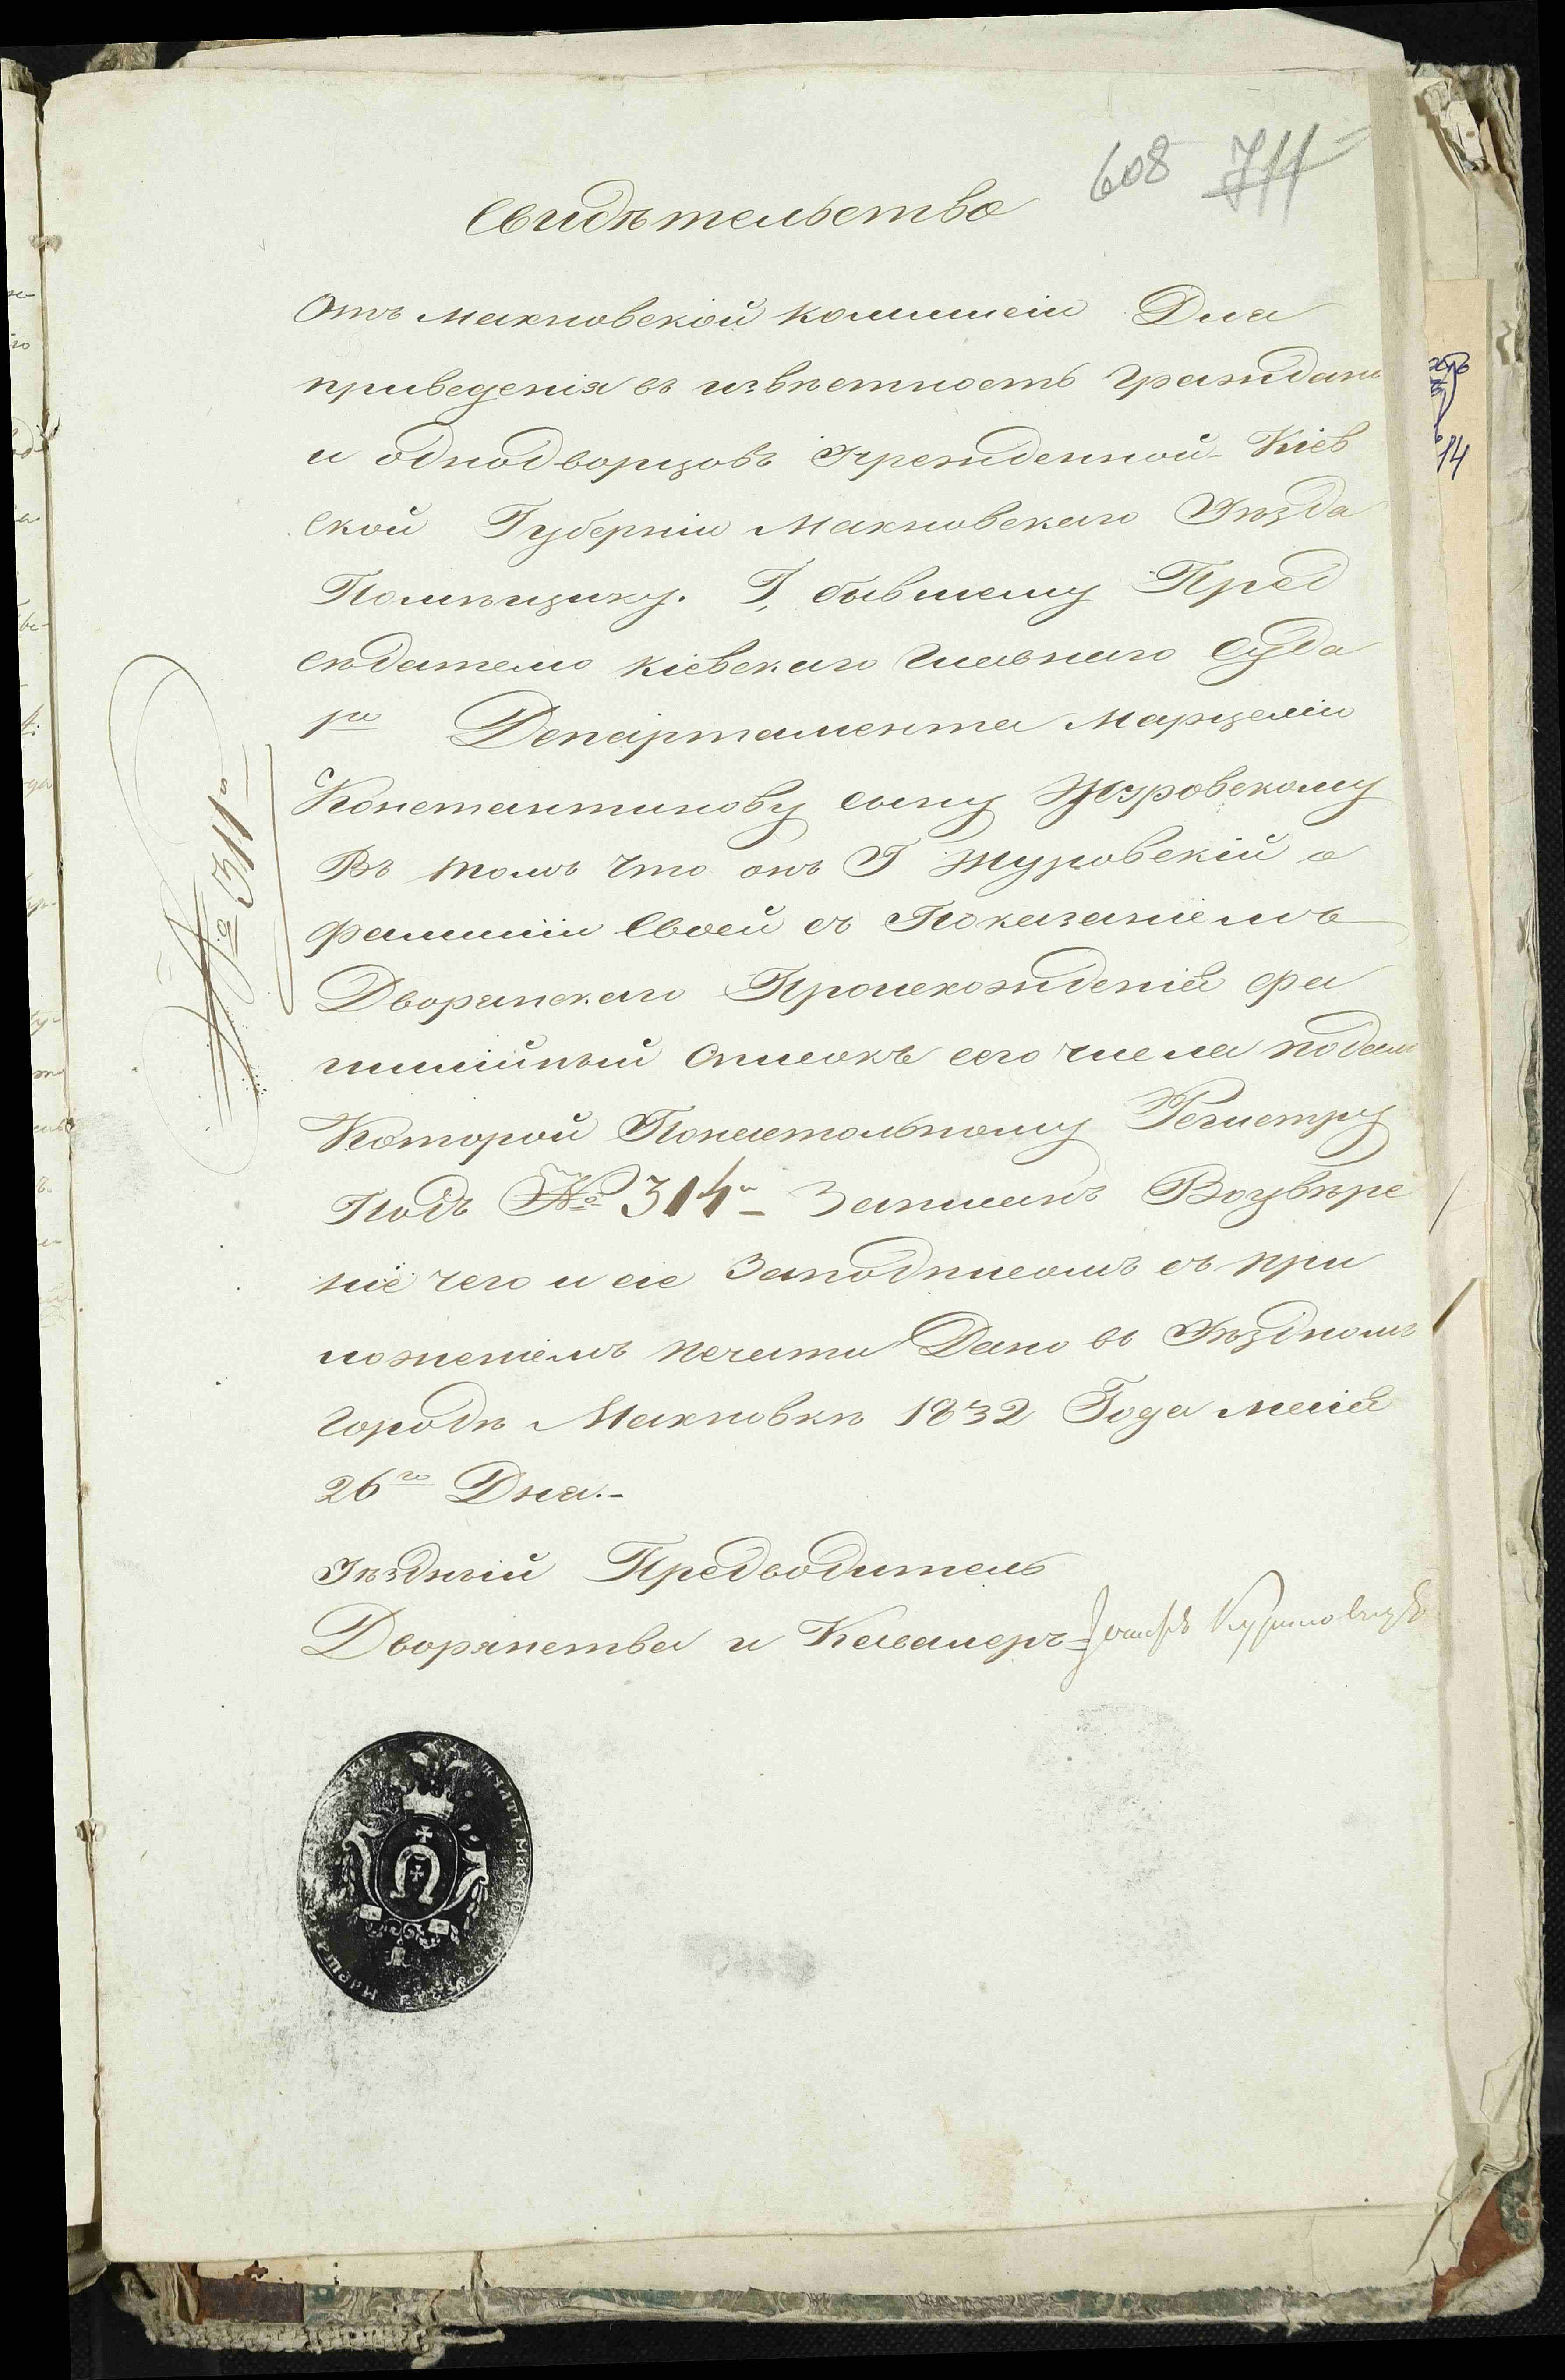 608 711
Свидѣтельство
Отъ Махновской Коммисіи Для
приведенія въ извѣстность Гражданъ
и однодворцовъ Учрежденной Кіев
ской Губерніи Махновскаго Уѣзда
Помѣщику. Г, бывшему Пред
сѣдателю Кіевскаго Главнаго Суда
1го Департамента Марцелію
Константинову сыну Журовскому
Въ томъ что онъ Г Журовскій о
фамиліи Своей съ Показаніемъ
Дворянскаго Происхожденія фа
милійный Списокъ сего числа подалъ
Которой Понастольному Регистру
Подъ № 314м Записанъ Воувѣре
ніе чего и сіе Заподписомъ съ при
ложеніемъ печати Дано въ Уѣздномъ
Городѣ Махновкѣ 1832 Года маія
26го Дня.-
Уѣздный Предводитель
Дворянства и Кавалеръ Іосифъ
№ 311
14